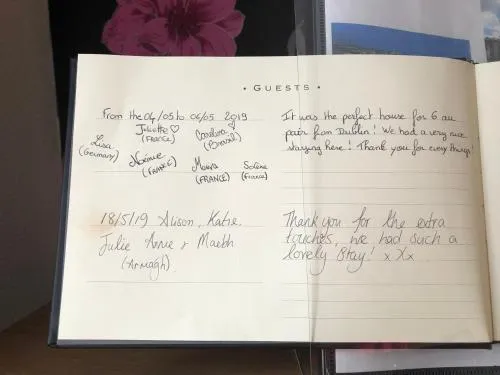 • GUESTS •
From the 04/05 to 06/05 2019
Juliette ♡ Carolina ♡
(FRANCE) (Brasil)
Lisa
(Germany)
Noémie
(FRANCE)
Maeva Solène
(FRANCE) (France)
It was the perfect house for 6 au
pair from Dublin! We had a very nice
staying here! Thank you for every things!
18/5/19 Alison, Katie,
Julie Anne & Maebh
(Armagh)
Thank you for the extra
touches, we had such a
lovely stay! x X x